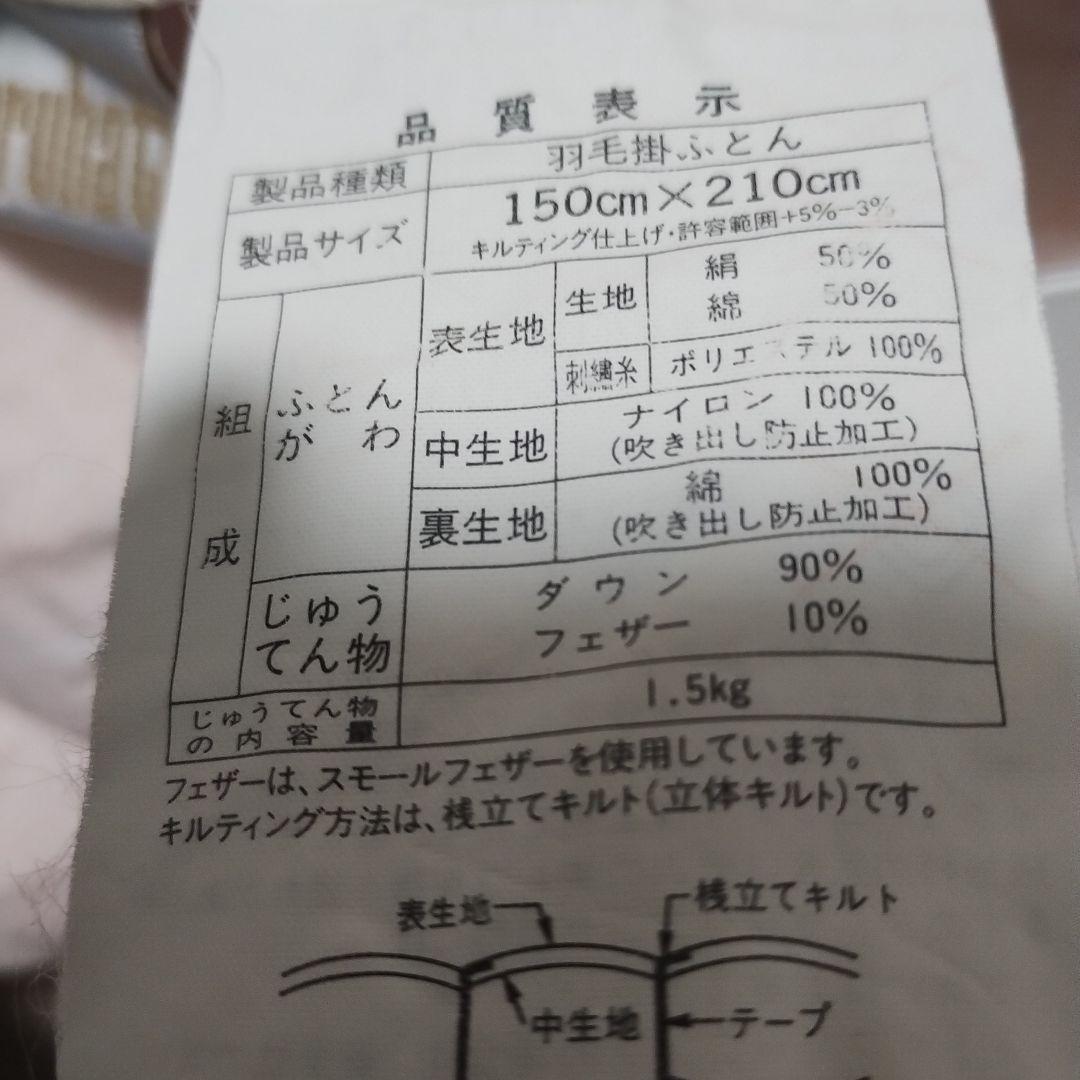 品質表示
製品種類 羽毛掛ふとん
製品サイズ 150cm×210cm
キルティング仕上げ・許容範囲+5%-3%
組成
ふとんがわ
表生地 生地 絹 50%
綿 50%
刺繍糸 ポリエステル 100%
中生地 ナイロン 100%
(吹き出し防止加工)
裏生地 綿 100%
(吹き出し防止加工)
じゅうてん物 ダウン 90%
フェザー 10%
じゅうてん物の内容量 1.5kg
フェザーは、スモールフェザーを使用しています。
キルティング方法は、桟立てキルト(立体キルト)です。
表生地 桟立てキルト
中生地 テープ